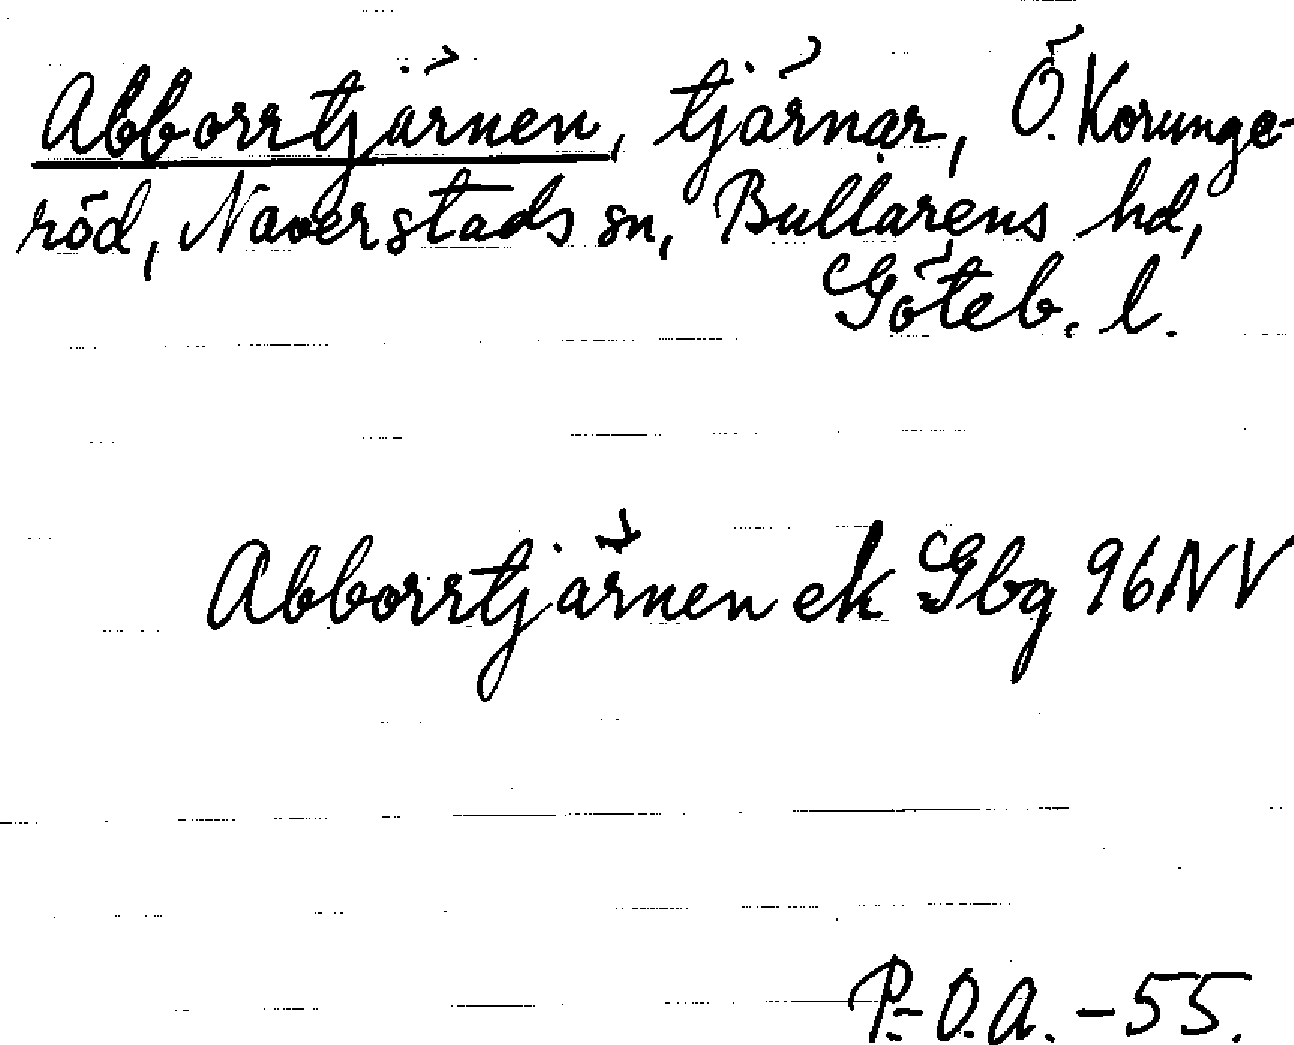 Abborrtjärnen, tjärnar, Ö. Korunge-
röd, Naverstads sn, Bullarens hd,
Göteb. l.
Abborrtjärnen ek Gbg 96NV
P.-O.A. - 55.